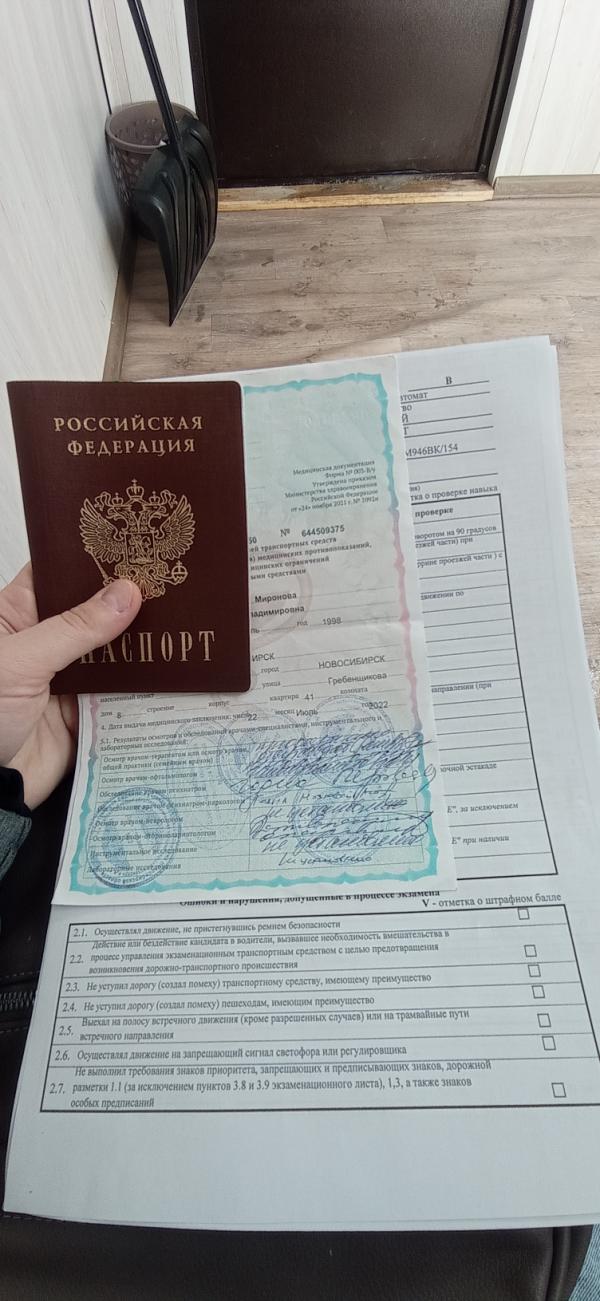 РОССИЙСКАЯ
ФЕДЕРАЦИЯ
ПАСПОРТ
Медицинская документация
Форма № 003-В/у
Утверждена приказом
Министерства здравоохранения
Российской Федерации
от «24» ноября 2021 г. № 1092н
50 № 644509375
ей транспортных средств
) медицинских противопоказаний,
ицинских ограничений
ыми средствами
Миронова
адимировна
ль год 1998
ИРСК город НОВОСИБИРСК
улица Гребенщикова
населенный пункт
дом 8 строение корпус квартира 41 комната
4. Дата выдачи медицинского заключения: число 22 месяц Июль год 2022
5.1. Результаты осмотров и обследований врачами-специалистами, инструментального и
лабораторных исследований:
Осмотр врачом-терапевтом или осмотр врачом
общей практики (семейным врачом)
Осмотр врачом-офтальмологом
Обследование врачом-психиатром
Обследование врачом психиатром-наркологом
Осмотр врачом-неврологом
Осмотр врачом-оториноларингологом
Инструментальное исследование
Лабораторные исследования
В
втомат
во
Й
Т
М946ВК/154
тка о проверке навыка
проверке
воротом на 90 градусов
езжей части) при
ирине проезжей части ) с
движении по
направлении (при
очной эстакаде
Е", за исключением
Е" при наличии
Ошибки и нарушения, допущенные в процессе экзамена
V - отметка о штрафном балле
2.1. Осуществлял движение, не пристегнувшись ремнем безопасности
2.2. Действие или бездействие кандидата в водители, вызвавшее необходимость вмешательства в
процесс управления экзаменационным транспортным средством с целью предотвращения
возникновения дорожно-транспортного происшествия
2.3. Не уступил дорогу (создал помеху) транспортному средству, имеющему преимущество
2.4. Не уступил дорогу (создал помеху) пешеходам, имеющим преимущество
2.5. Выехал на полосу встречного движения (кроме разрешенных случаев) или на трамвайные пути
встречного направления
2.6. Осуществлял движение на запрещающий сигнал светофора или регулировщика
2.7. Не выполнил требования знаков приоритета, запрещающих и предписывающих знаков, дорожной
разметки 1.1 (за исключением пунктов 3.8 и 3.9 экзаменационного листа), 1,3, а также знаков
особых предписаний